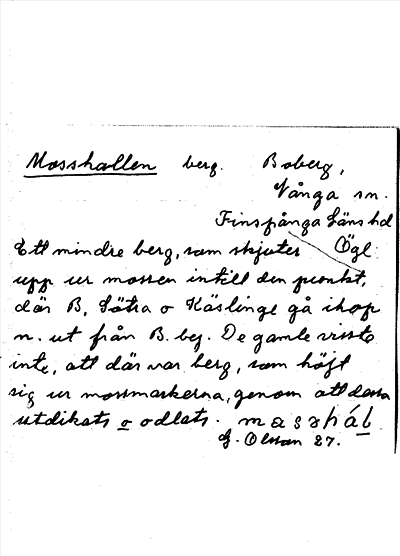 Mosshallen berg. Boberg,
Vånga sn.
Finspånga läns hd
Ett mindre berg, som skjuter Ögl
upp ur mossen intill den punkt,
där B, Sätra o Käslinge gå ihop
n. ut från B. bej. De gamle visste
inte, att där var berg, som höjt
sig ur mossmarkerna, genom att dessa
utdikats o odlats.
G. Olsson 27.